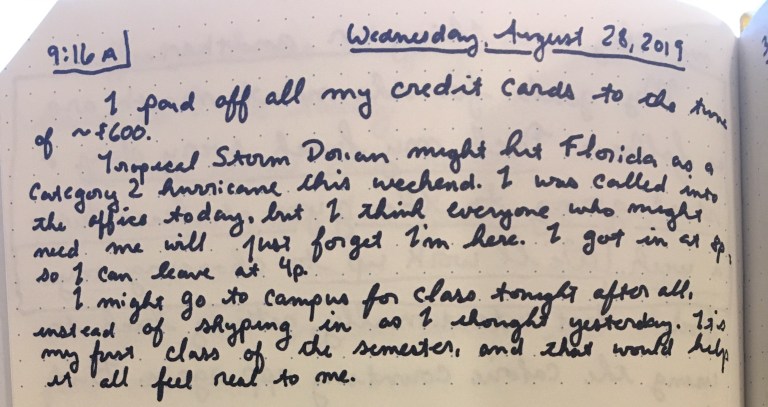 9:16 A
Wednesday, August 28, 2019
I paid off all my credit cards to the tune
of ~$600.
Tropical Storm Dorian might hit Florida as a
Category 2 hurricane this weekend. I was called into
the office today, but I think everyone who might
need me will just forget I'm here. I got in at 8p,
so I can leave at 4p.
I might go to campus for class tonight after all,
instead of skyping in as I thought yesterday. It's
my first class of the semester, and that would help
it all feel real to me.